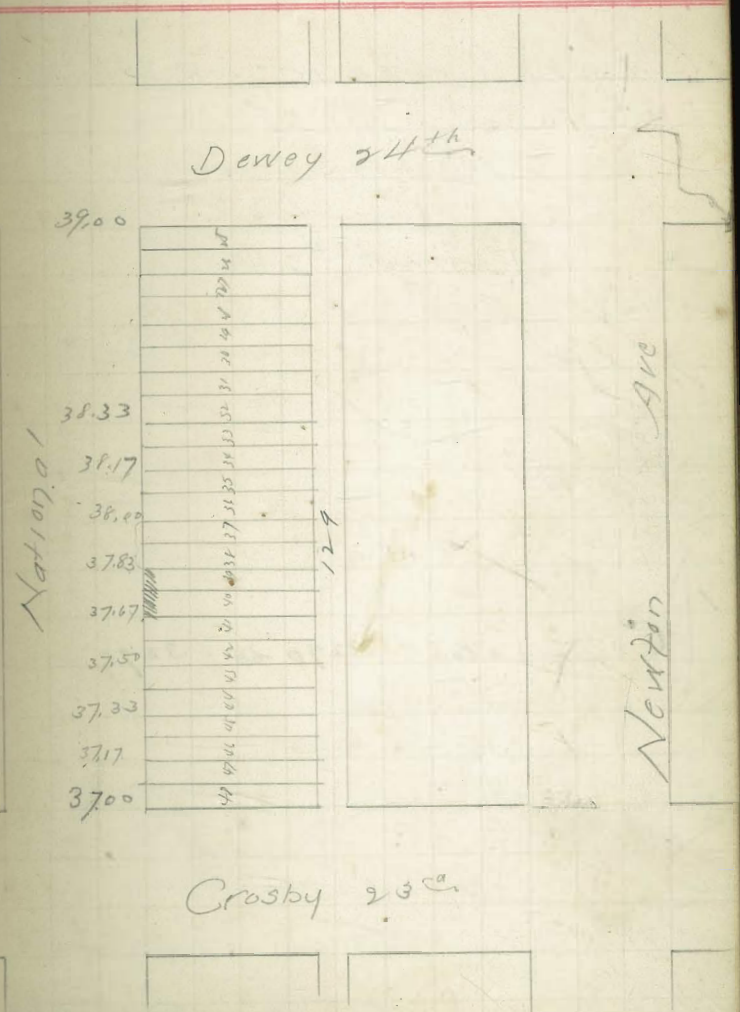 Dewey 24th
39.00
38.33
38.17
38.00
37.83
37.67
37.50
37.33
37.17
37.00
31
32
33
34
35
36
37
38
39
40
41
42
43
44
45
46
47
48
129
National
Newton Ave
Crosby 23d